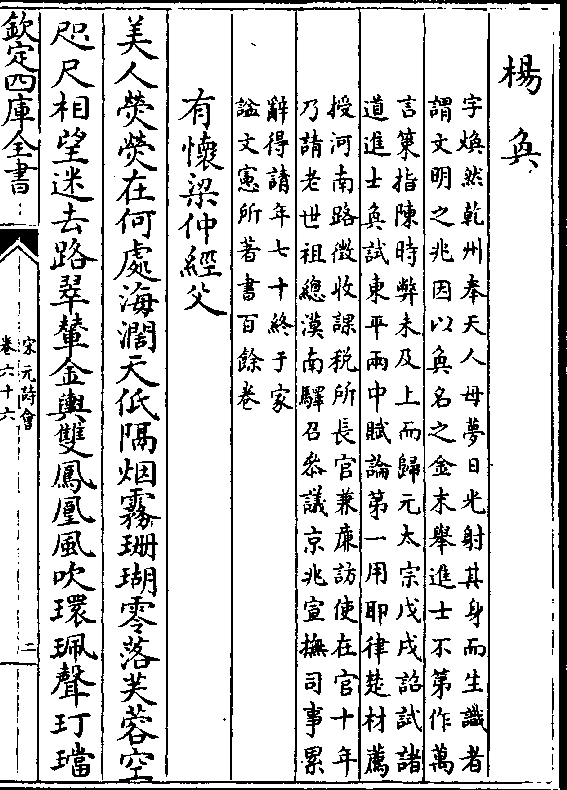 楊奐
字煥然乾州奉天人母夢日光射其身而生識者
謂文明之兆因以奐名之金末舉進士不第作萬
言策指陳時弊未及上而歸元太宗戊戌詔試諸
道進士奐試東平兩中賦論第一用耶律楚材薦
授河南路徴收課税所長官兼廉訪使在官十年
乃請老世祖總漠南驛召叅議京兆宣撫司事累
辭得請年七十終于家
諡文憲所著書百餘卷
有懷梁仲經父
美人熒熒在何處海濶天低隔烟霧珊瑚零落芙蓉空
咫尺相望迷去路翠輦金輿雙鳳凰風吹環珮聲玎璫
欽定四庫全書
宋元詩會
卷六十六
二